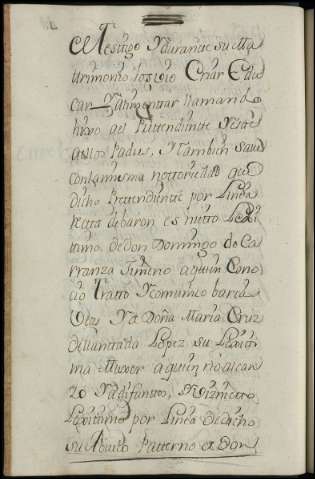 el Testigo Y durante su Ma
trimonio los vio Criar Edu
car Y alimentar llamando
hixo al Prettendiente Y este
a ellos Padres, Y Tambien save
con la misma nottoriedad que
dicho Prettendiente por Linea
recta de baron es nietto Lexi
timo de don Domingo de Ca
rranza Ximeno a quien Cono
cio Tratto Y comunico barias
Vezes Y a Doña Maria Cruz
de Luntrada Lopez su Lexiti
ma Muxer a quien no alcan
zo Ya difuntto, Y Viznietto
Lexittimo por Linea de dicho
su Abuelo Patterno de Don